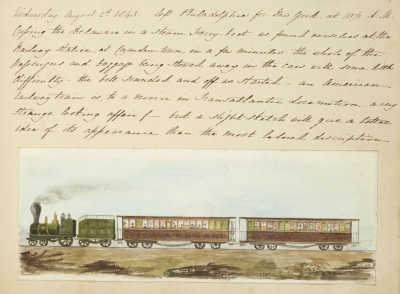 Wednesday August 2d 1843. Left Philadelphia for New York at 10½ A.M.
Crossing the Delaware in a steam ferry boat we found ourselves at the
Railway Station, at Camden town, in a few minutes the whole of the
passengers and baggage being stowed away in the cars with some little
difficulty – the bell sounded and off we started – an American
railway train is, to a novice in Transatlantic locomotion, a very
strange looking affair – but a slight sketch will give a better
idea of its appearance than the most labored description